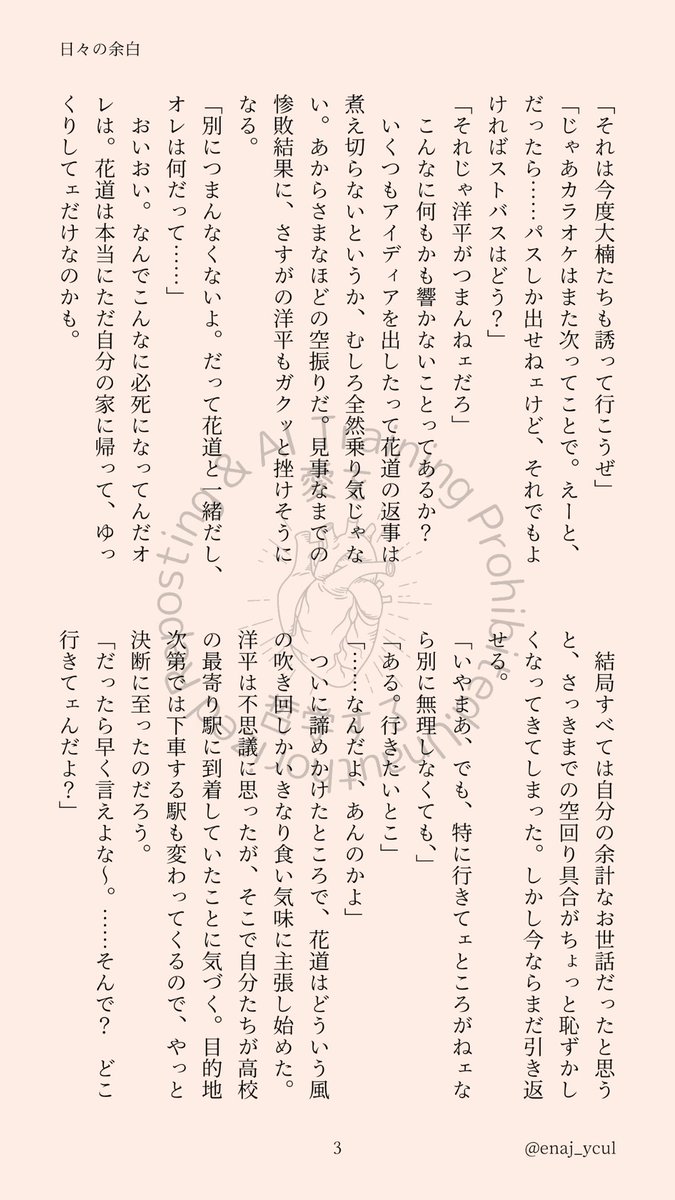 日々の余白
「それは今度大楠たちも誘って行こうぜ」
「じゃあカラオケはまた次ってことで。えーと、
だったら……パスしか出せねェけど、それでもよ
ければストバスはどう？」
「それじゃ洋平がつまんねェだろ」
こんなに何もかも響かないことってあるか？
いくつもアイディアを出したって花道の返事は
煮え切らないというか、むしろ全然乗り気じゃな
い。あからさまなほどの空振りだ。見事なまでの
惨敗結果に、さすがの洋平もガクッと挫けそうに
なる。
「別につまんなくないよ。だって花道と一緒だし、
オレは何だって……」
おいおい。なんでこんなに必死になってんだオ
レは。花道は本当にただ自分の家に帰って、ゆっ
くりしてェだけなのかも。
結局すべては自分の余計なお世話だったと思う
と、さっきまでの空回り具合がちょっと恥ずかし
くなってきてしまった。しかし今ならまだ引き返
せる。
「いやまあ、でも、特に行きてェところがねェな
ら別に無理しなくても、」
「ある。行きたいとこ」
「……なんだよ、あんのかよ」
ついに諦めかけたところで、花道はどういう風
の吹き回しかいきなり食い気味に主張し始めた。
洋平は不思議に思ったが、そこで自分たちが高校
の最寄り駅に到着していたことに気づく。目的地
次第では下車する駅も変わってくるので、やっと
決断に至ったのだろう。
「だったら早く言えよな〜。……そんで？　どこ
行きてェんだよ？」
Unauthorized Reposting & AI Training Prohibited.
3
@enaj_ycul